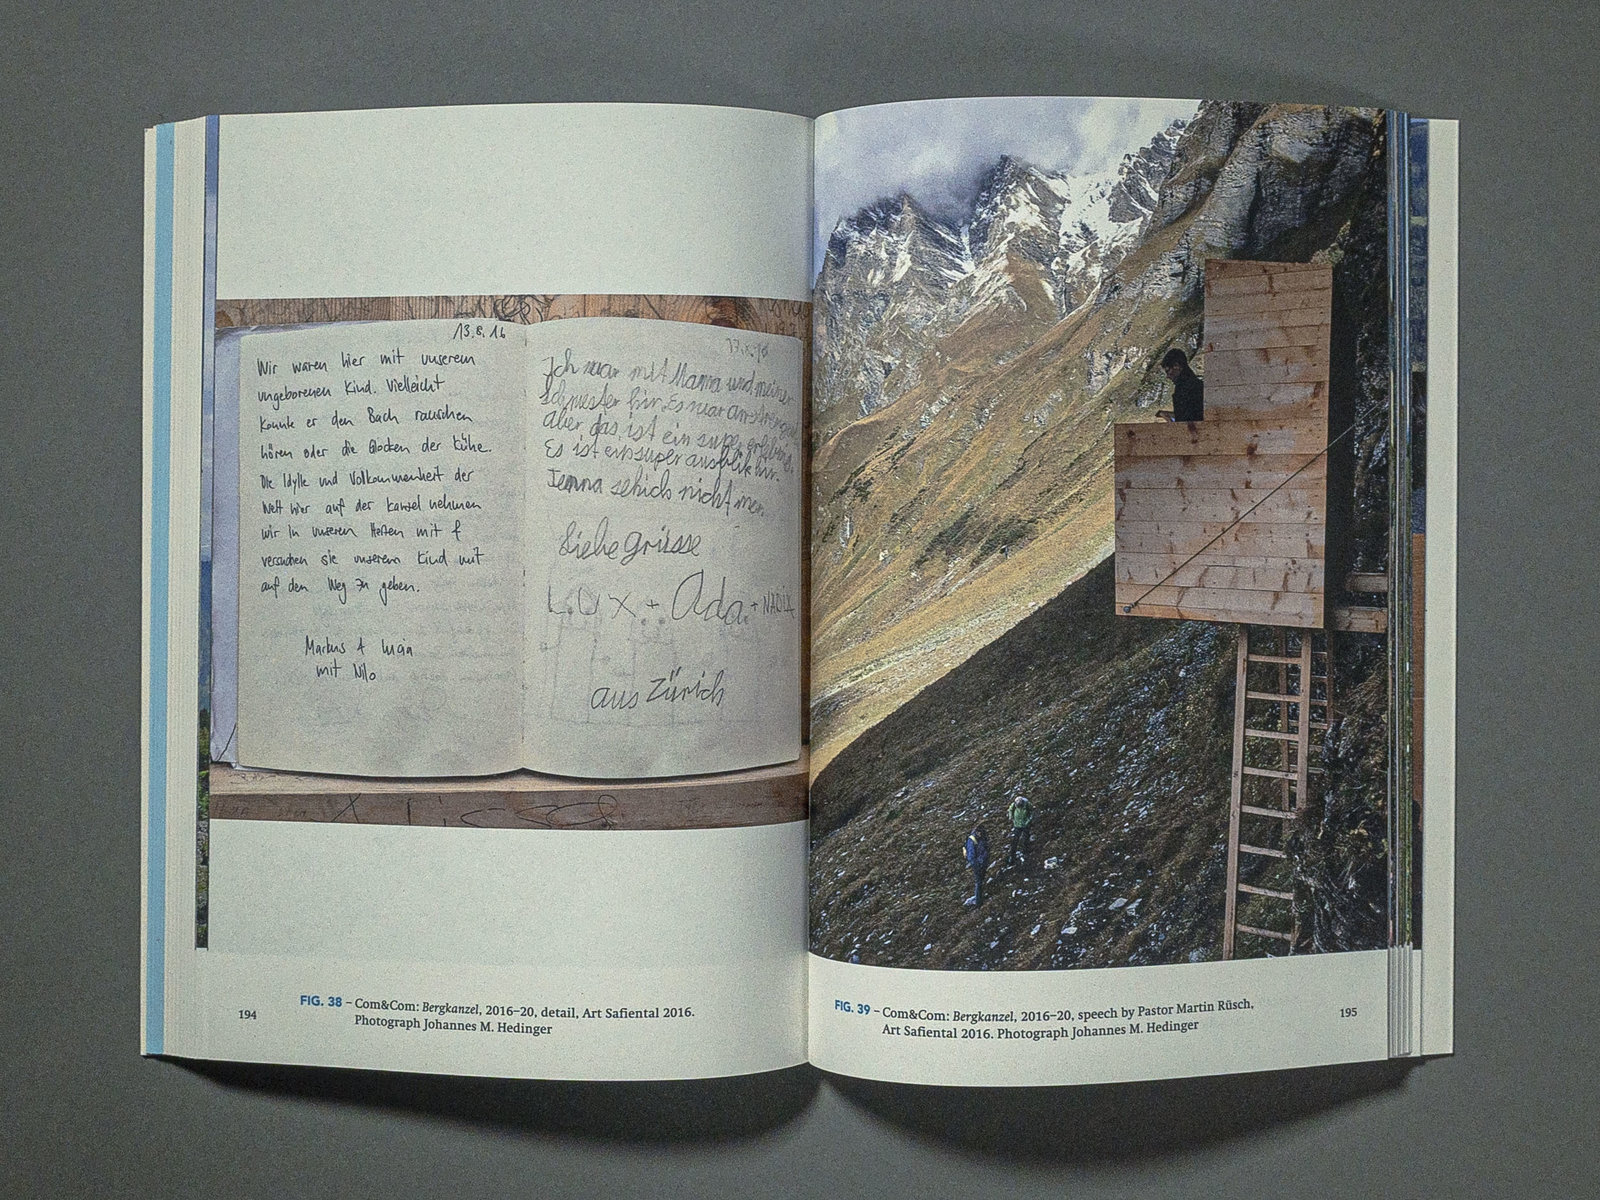 13.8.16
Wir waren hier mit unserem
ungeborenen Kind. Vielleicht
konnte er den Bach rauschen
hören oder die Glocken der Kühe.
Die Idylle und Vollkommenheit der
Welt hier auf der Kanzel nehmen
wir in unseren Herzen mit &
versuchen sie unserem Kind mit
auf den Weg zu geben.
Markus & Lucia
mit Nilo
Ich war mit Mama und meiner
Schwester hir. Es war anstrengend
aber das ist ein super erlebnis.
Es ist ein super ausblik hir.
Jemma
nicht
Liebe grüsse
Lux + Ada + NADJA
aus Zürich
FIG. 38 – Com&Com: Bergkanzel, 2016–20, detail, Art Safiental 2016.
Photograph Johannes M. Hedinger
194
FIG. 39 – Com&Com: Bergkanzel, 2016–20, speech by Pastor Martin Rüsch,
Art Safiental 2016. Photograph Johannes M. Hedinger
195